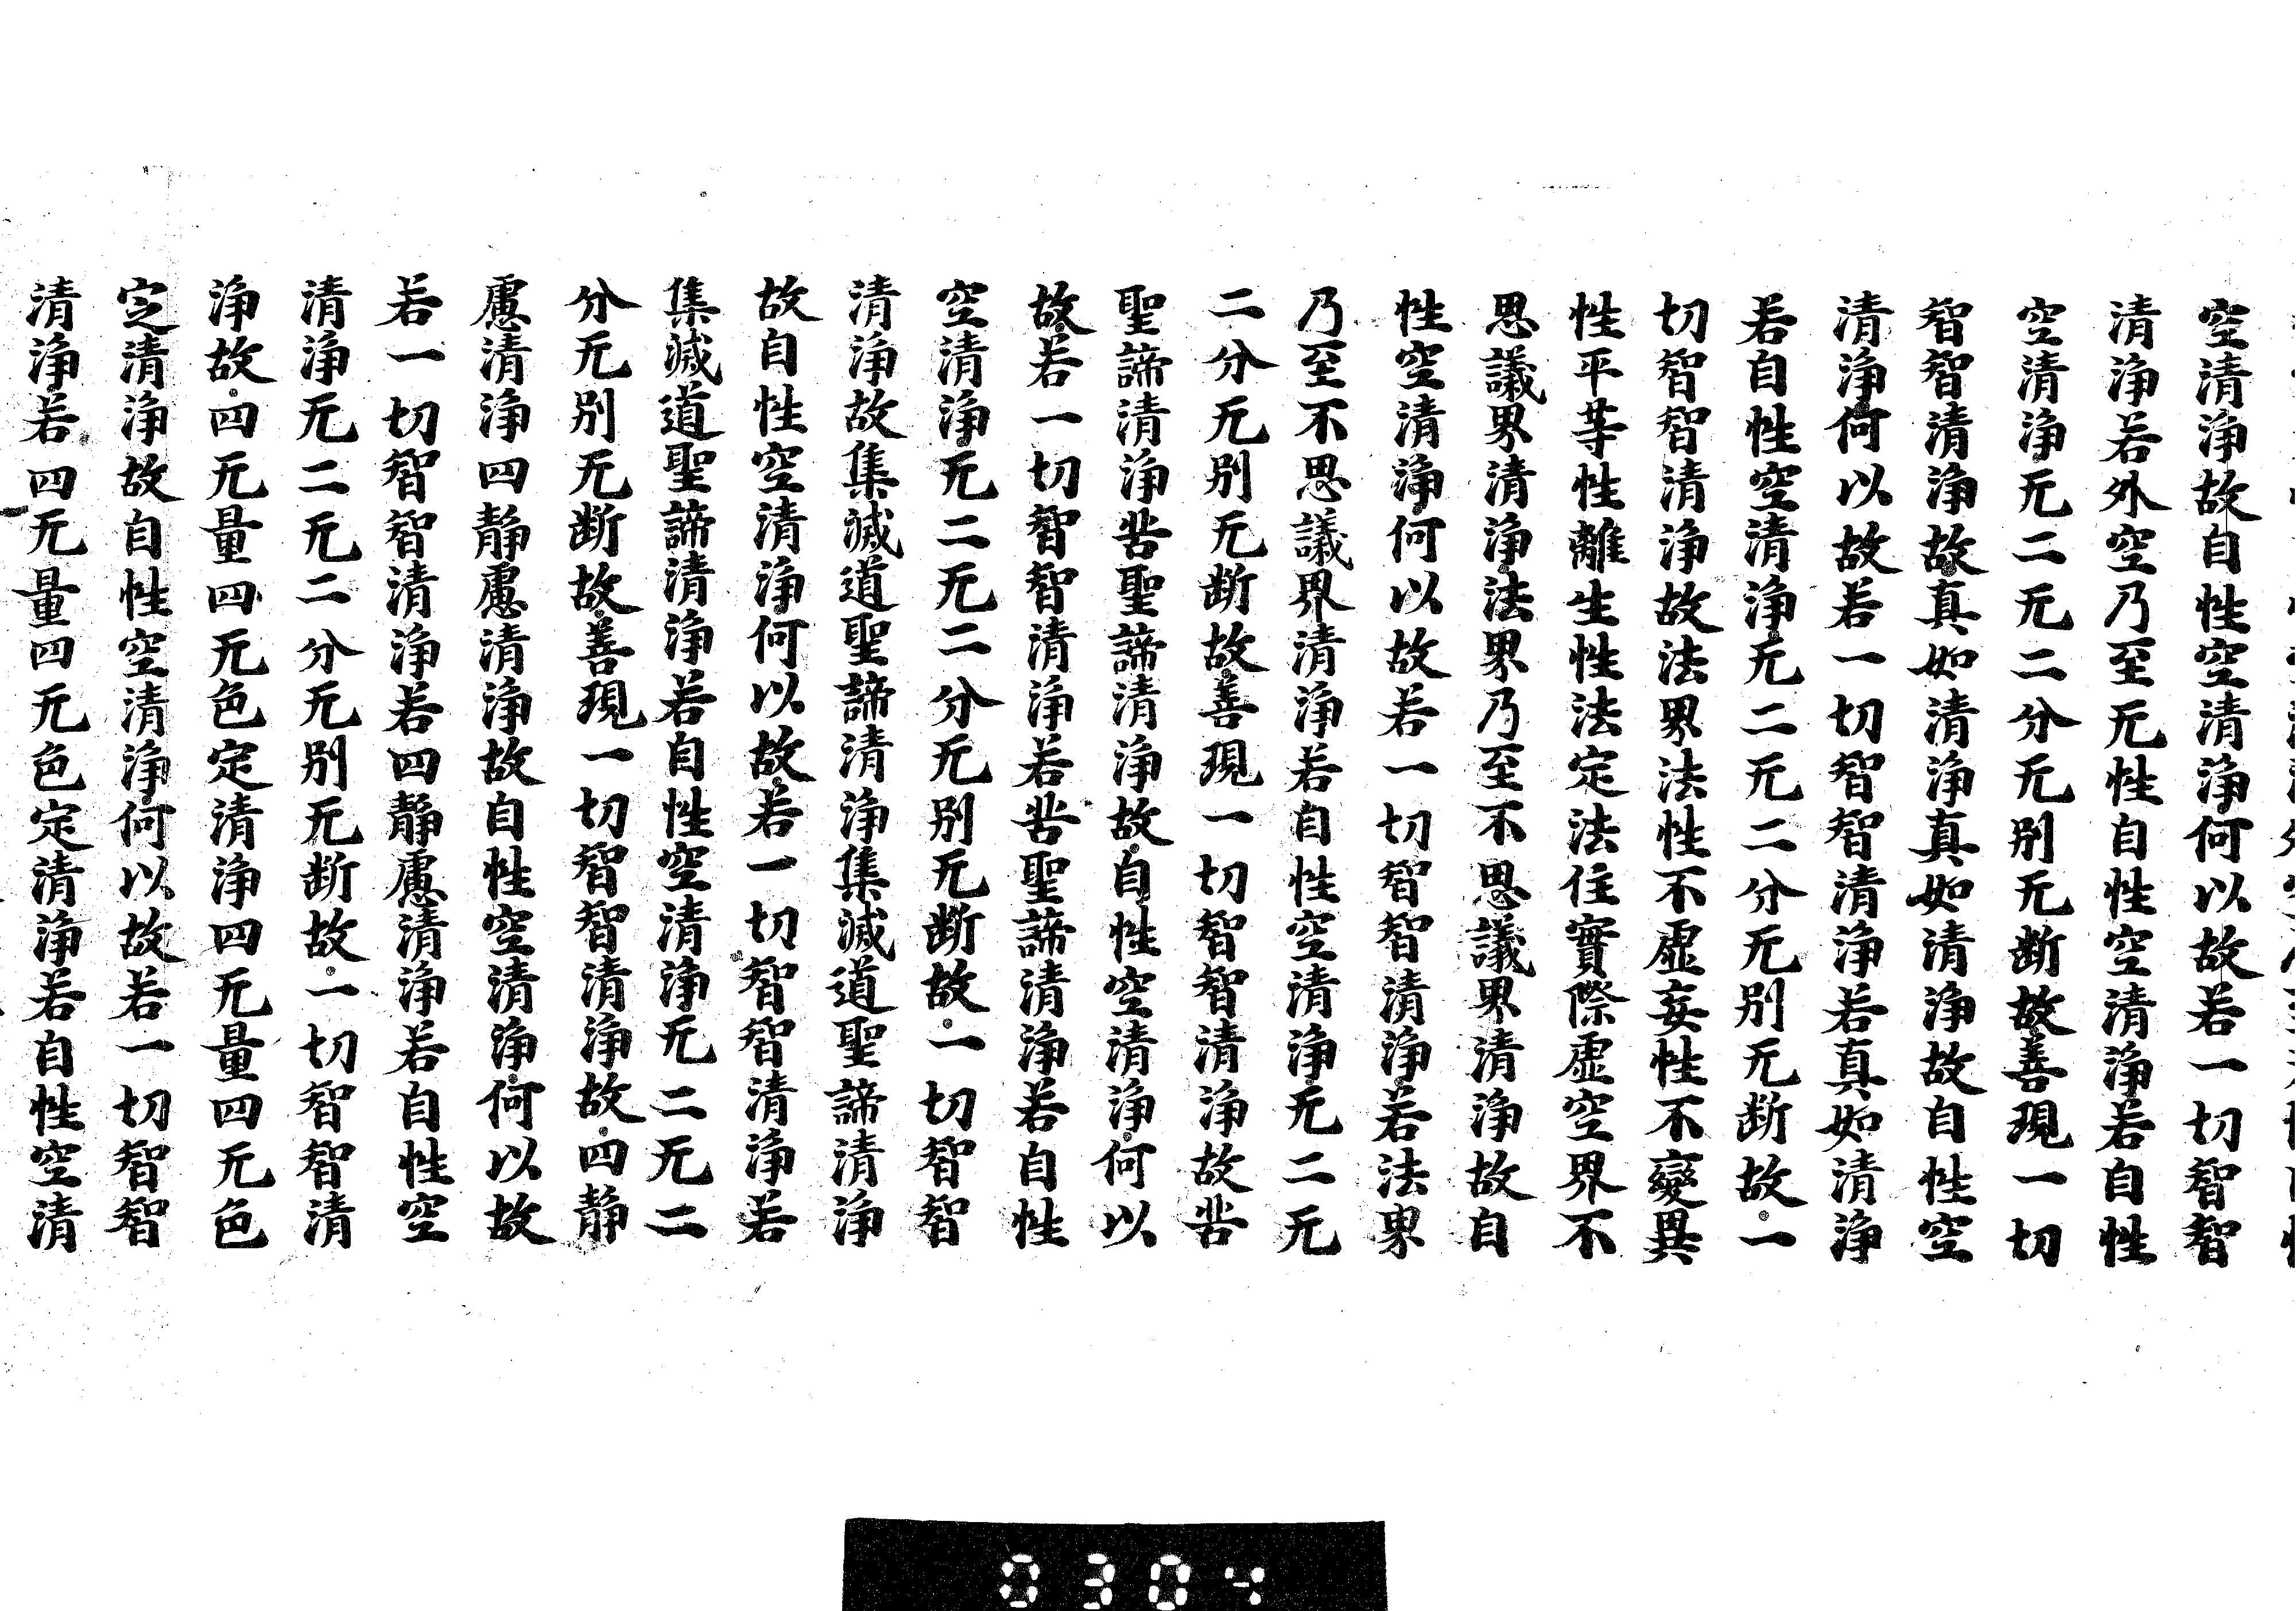 空清淨故自性空清淨何以故若一切智智
清淨若外空乃至无性自性空清淨若自性
空清淨无二无二分无別无断故善現一切
智智清淨故真如清淨真如清淨故自性空
清淨何以故若一切智智清淨若真如清淨
若自性空清淨无二无二分无別无断故一
切智智清淨故法界法性不虛妄性不變異
性平等性離生性法定法住實際虛空界不
思議界清淨法界乃至不思議界清淨故自
性空清淨何以故若一切智智清淨若法界
乃至不思議界清淨若自性空清淨无二无
二分无別无断故善現一切智智清淨故苦
聖諦清淨苦聖諦清淨故自性空清淨何以
故若一切智智清淨若苦聖諦清淨若自性
空清淨无二无二分无別无断故一切智智
清淨故集滅道聖諦清淨集滅道聖諦清淨
故自性空清淨何以故若一切智智清淨若
集滅道聖諦清淨若自性空清淨无二无二
分无別无断故善現一切智智清淨故四静
慮清淨四静慮清淨故自性空清淨何以故
若一切智智清淨若四静慮清淨若自性空
清淨无二无二分无別无断故一切智智清
淨故四无量四无色定清淨四无量四无色
定清淨故自性空清淨何以故若一切智智
清淨若四无量四无色定清淨若自性空清
0304